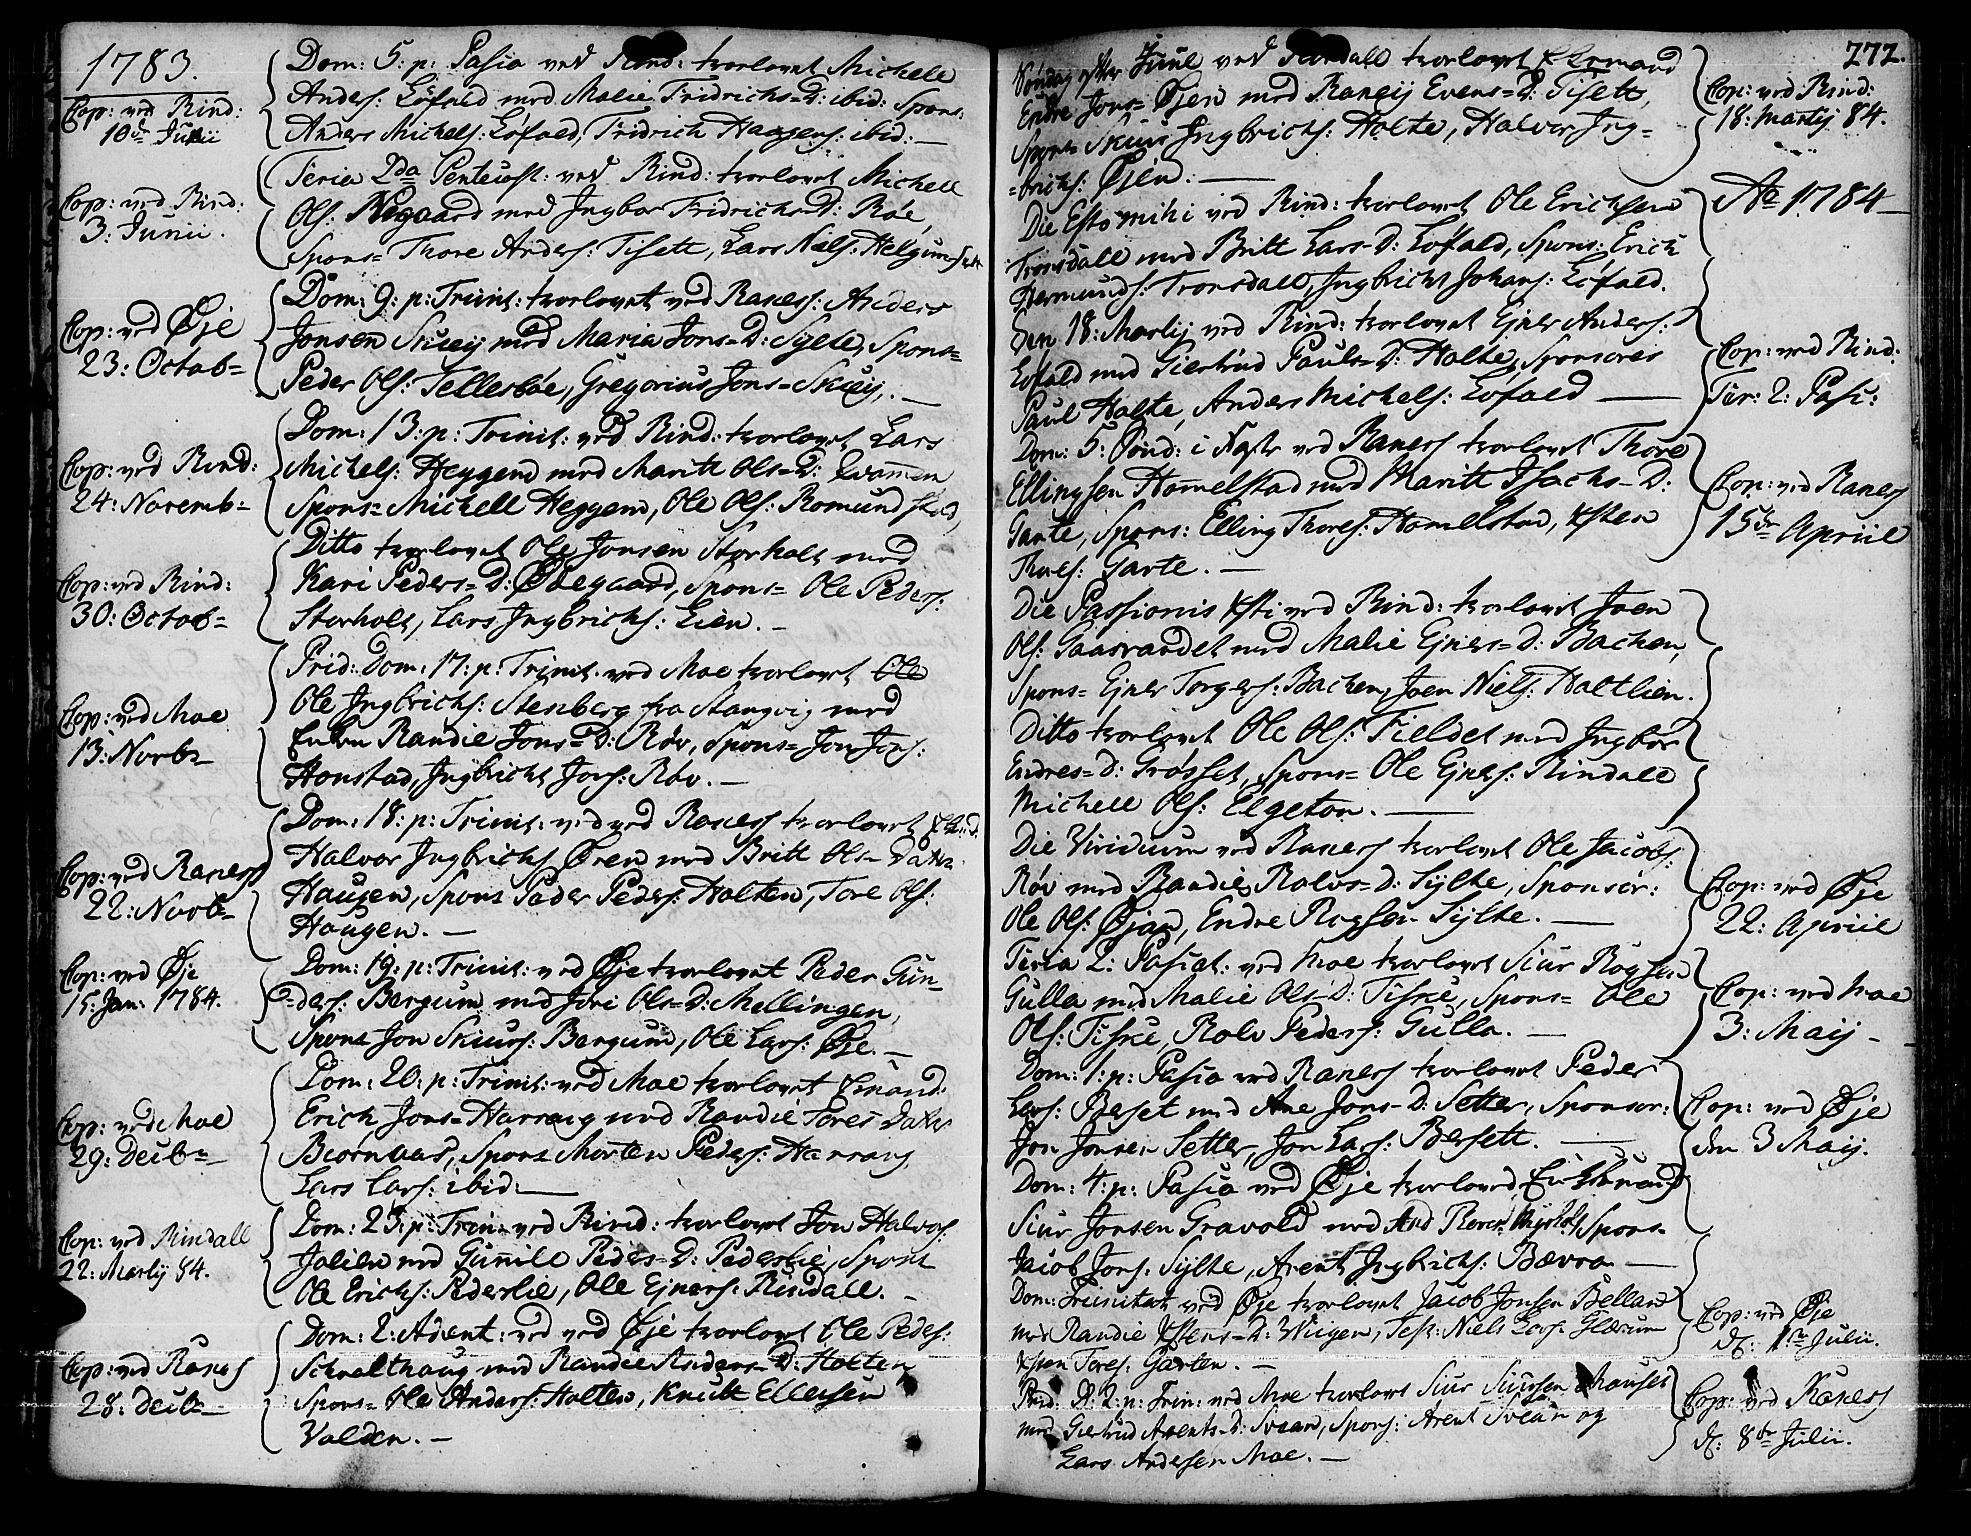 1783.
Cop: ved Rind:
10de Junii
Dom: 5: p: Pasca ved Rind: trorlovet Michell
Anders: Löfald med Malie Fridrichs=D: ibid: Spons:
Anders Michels: Löfald, Fridrich Haagens: ibid: —
Cop: ved Rind:
3: Junii.
Feria 2da Pentecost: ved Rind: trorlovet Michell
Ols: Negaard med Ingbor Fridrichs-D: Röe,
Spons= Thore Anders: Tisett, Lars Nels:
Cop: ved Øje
23: Octob=
Dom: 9: p: Trinit: trorlovet ved Raness: Anders
Jonsen Skuey med Maria Jons-D: Sylte, Spons=
Peder Ols: Tellesböe, Gregorius Jons= Skuey. —
Cop: ved Rind:
24: Novemb=
Dom: 13: p: Trinit: ved Rind: trorlovet Lars
Michels: Heggend med Maritt Ols=D: Qvammen
Spons= Michell Heggend, Ole Ols: Romundstad,
Cop: ved Rind:
30: Octob=
Ditto trorlovet Ole Jonsen Storholt med
Kari Peders=D: Ødegaard, Spons= Ole Peders:
Storholt, Lars Ingbrichs: Lien. —
Cop: ved Moe
13: Novb=
Prid: Dom: 17: p: Trinit: ved Moe trorlovet Ole
Ole Ingbrichs: Stenberg fra Stangvig med
Enken Randie Jons=D: Röv, Spons= Jon Jons:
Honstad, Ingbricht Jors: Röv. —
Cop: ved Raness
22: Novb=
Dom: 18: p: Trinit: ved ved Raness trorlovet
Halvor Ingbrichs Øren med Britt Ols= Datter
Haugen, Spons Peder Peders: Holten, Tore Ols:
Haugen. —
Cop: ved Øje
15: Jan: 1784.
Dom: 19: p: Trinit: ved Øje trorlovet Peder Gun-
=ders: Bergum med Jöri Ols=D: Mellingen,
Spons Jon Skiurs: Bergum, Ole Lars: Øje. —
Cop: ved Moe
29: Decb=
Dom: 20: p: Trinit: ved Moe trorlovet Enkmd:
Erich Jons= Harrang med Randie Tores Datter
Biörnaas, Spons Morten Peders: Harrang
Lars Lars: ibid: —
Cop: ved Rindall
22: Martij 84.
Dom: 23: p: Trin: ved Rind: trorlovet Jon Halvors:
Jolien med Gunnill Peders=D: Pederlie, Spons
Ole Erichs: Pederlie, Ole Ejners: Rindall. —
Cop: ved Ranes
28: Decb=
Dom: 2: Advent: ved ved Øje trorlovet Ole Peders:
Schralthaug med Randie Anders=D: Holten
Spons= Ole Anders: Holten, Knutt Ellevsen
Valden. —
272.
Söndag efter Juul ved Rindall trorlovet
Endre Jons= Øjen med Raneij Evens=D: Tisett,
Spons= Skiur Ingbrichs: Holte, Halvor Ing=
=brichs: Øjen. —
Cop: ved Rind:
18: Martij 84.
Ao 1784 —
Die Esto mihi ved Rind: trorlovet Ole Erichsen
Tronsdall med Britt Lars=D: Löfald, Spons: Erich
Hermunds: Tronsdall, Ingbricht Johans: Löfald.
Den 18: Martij ved Rind: trorlovet Ejner Anders:
Löfald med Giertrud Pauls=D: Holte, Sponsores
Paul Holte, Anders Michels: Löfald —
Cop: ved Rind:
Fer: 2: Pasc:
Dom: 5: Sönd: i Faste ved Raness trorlovet Thore
Ellingsen Hommelstad med Maritt Isachs=D:
Garte, Spons: Elling Thores: Hommelstad, Esten
Thores: Garte. —
Cop: ved Raness
15de Apriil
Die Passionis Xsti ved Rind: trorlovet Joen
Ols: Gaasvandet med Malie Ejners=D: Bachen,
Spons= Ejner Torgers: Bachen, Joen Niels: Holtlien.
Ditto trorlovet Ole Ols: Fieldet med Ingbor
Endres=D: Grösset, Spons= Ole Ejners: Rindall
Michell Ols: Elgeton. —
Die Viridium ved Raness trorlovet Ole Jacobs:
Röv med Randie Rolvs=D: Sylte, Sponsor:
Ole Ols: Øjan, Endre Rogsen Sylte. —
Cop: ved Øje
22: Apriil
Feria 2: Pascat: ved Moe trorlovet Siur Rogsen
Gulla med Malie Ols=D: Tiske, Spons= Ole
Ols: Tiske, Rolv Peders: Gulla. —
Cop: ved Moe
3: Maij —
Dom: 1: p: Pasca ved Raness trorlovet Peder
Lars: Beset med Ane Jons=D: Setter, Sponsor:
Jon Jonsen Setter, Jon Lars: Bersett. —
Cop: ved Øje
den 3 Maij.
Dom: 4: p: Pasca ved Øje trorloved
Siur Jonsen Gravold med Spons=
Jacob Jons: Sylte, Arent Ingbrichs: Bævra —
Dom: Trinitat: ved Øje trorlovet Jacob Jonsen Belland
med Randie Estens=D: Wiigen, Test: Niels Lars: Glærum
Esten Tores: Garten. —
Cop: ved Øje
d: 1ste Julii.
Prid: D: 2: p: Trin: ved Moe trorlovet Siur Siursen Mauset
med Giertrud Arents=D: Svean, Spons: Arent Svean og
Lars Andersen Moe. —
Cop: ved Raness
d: 8de Julii.